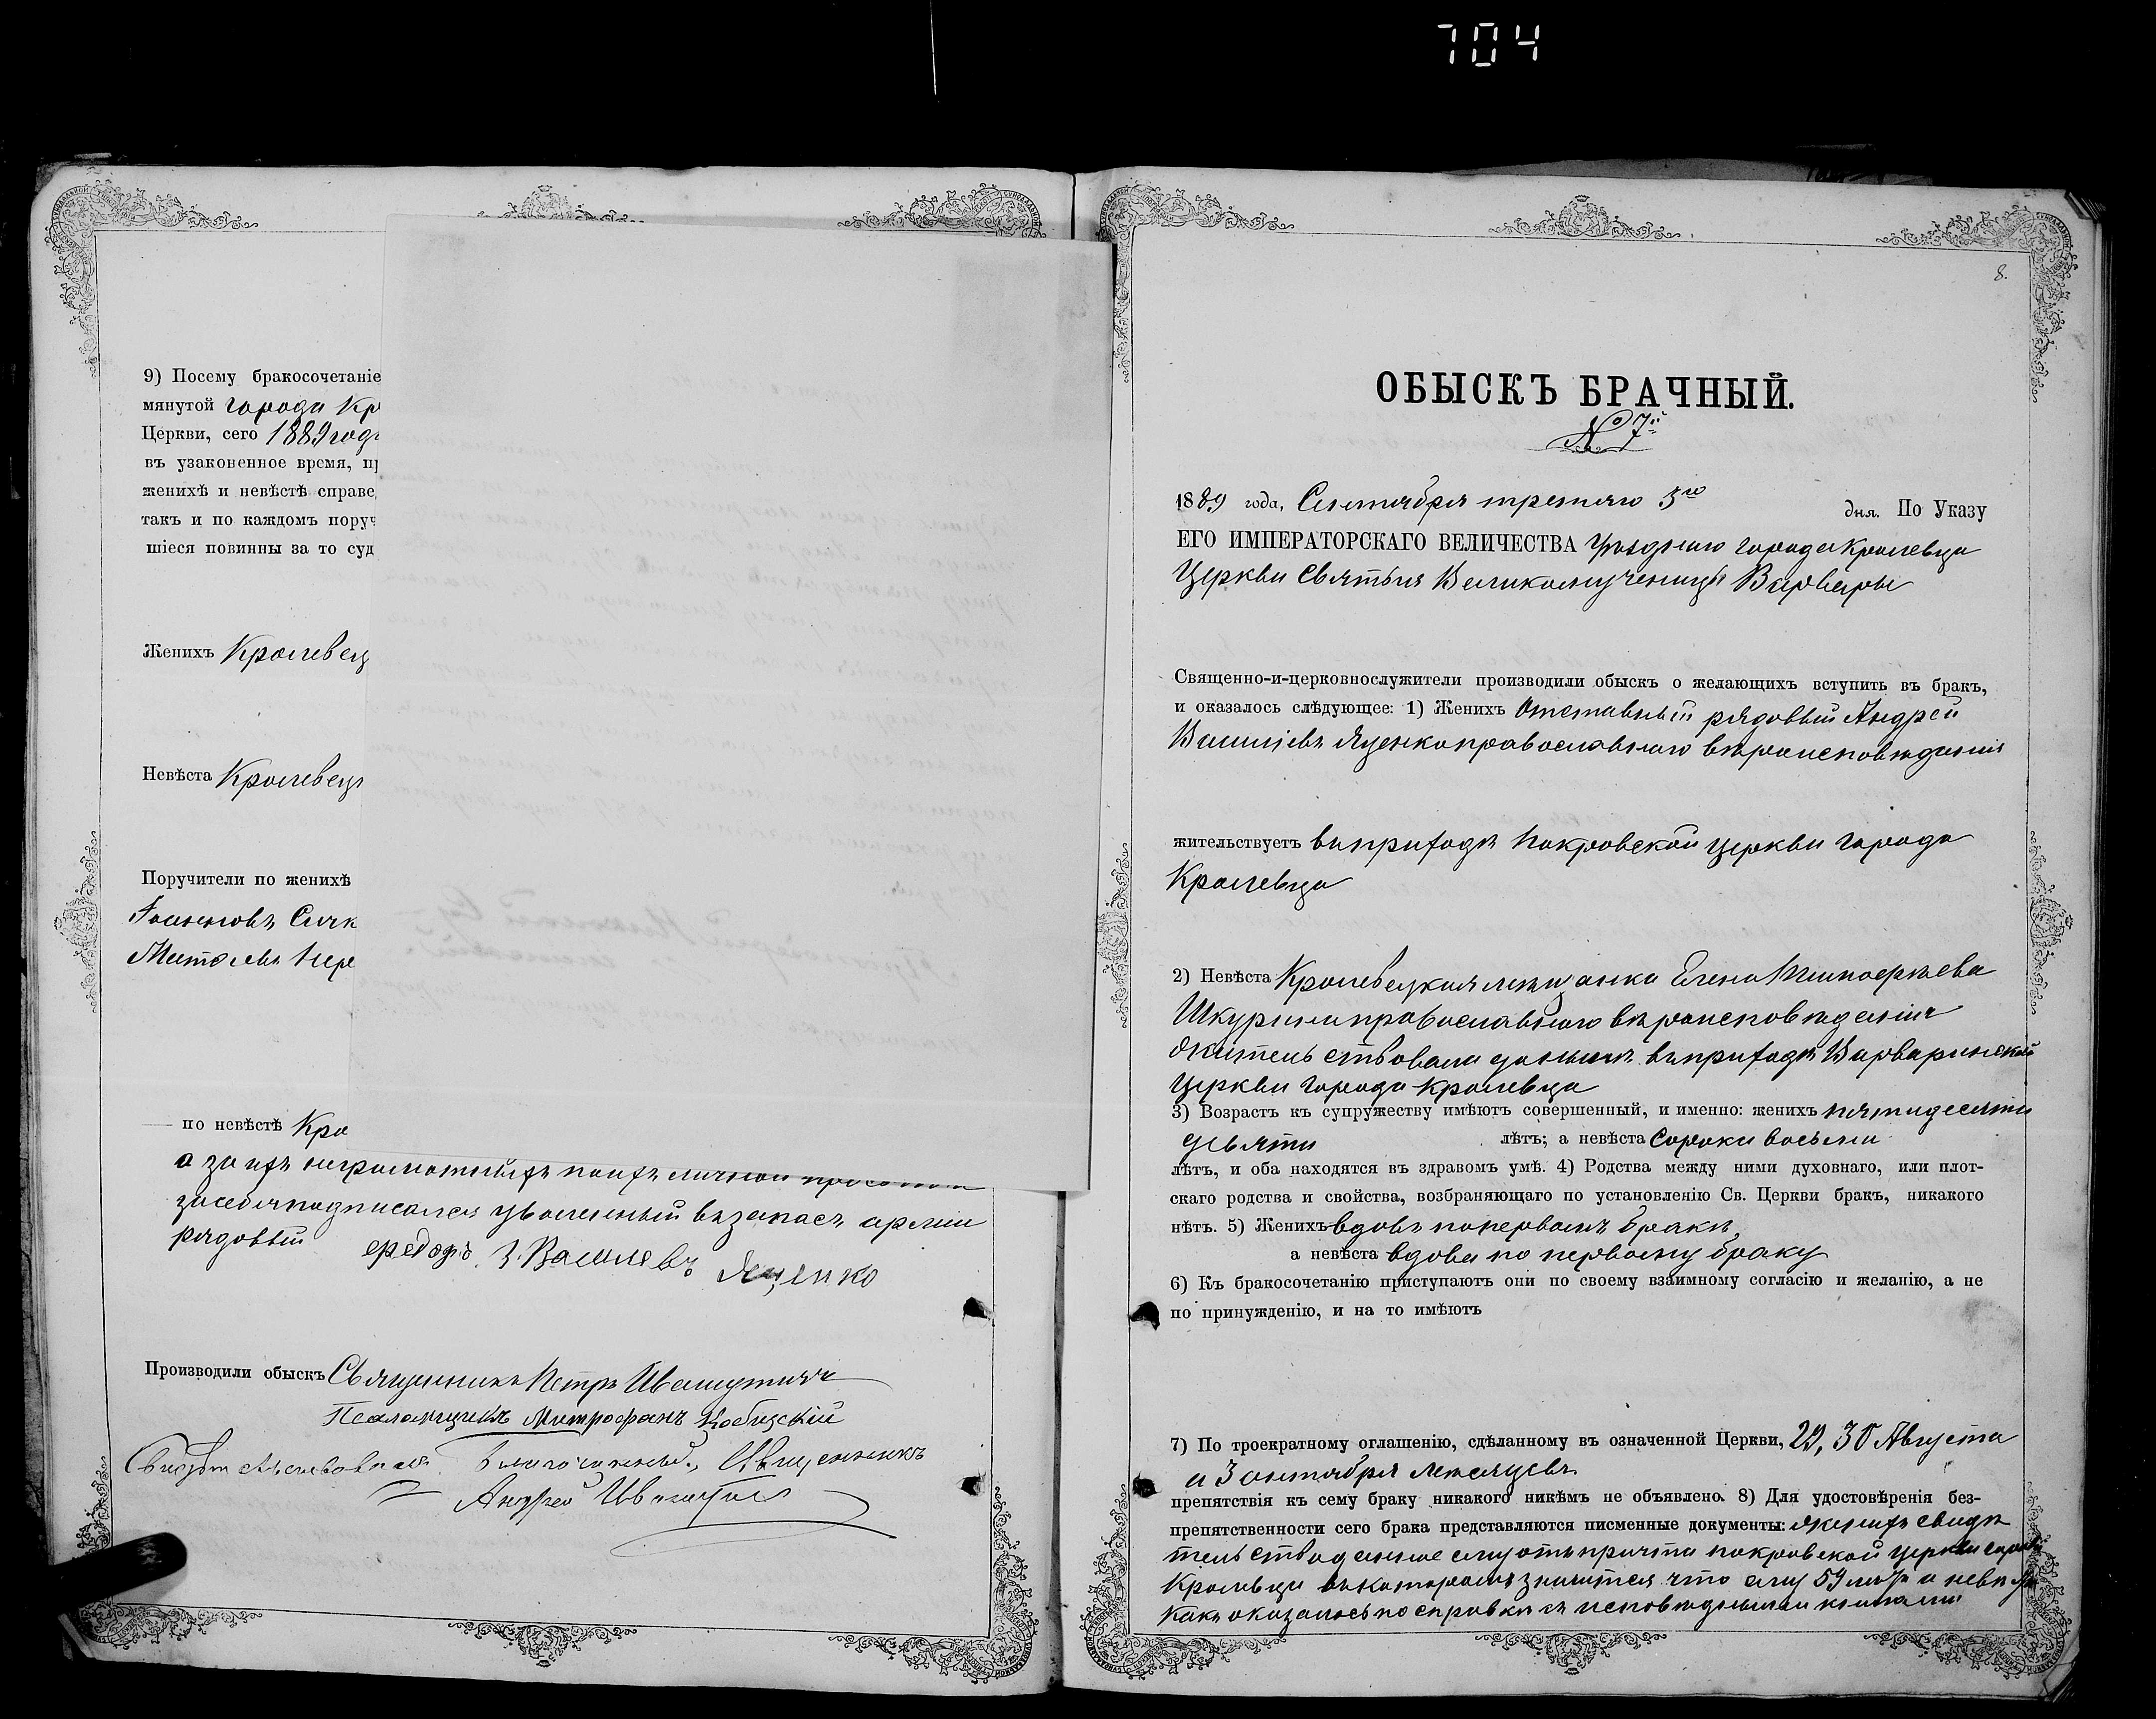 704
9) Посему бракосочетаніе
мянутой города Кр
Церкви, сего 1889 года
въ узаконенное время, пр
женихѣ и невѣстѣ справе
такъ и по каждомъ поруч
шіеся повинны за то суд
Женихъ Кролевец
Невѣста Кролевец
Поручители по женихѣ
по невѣстѣ Кро
а за ихъ неграмотныхъ по ихъ личной
за себя подписался уволенный въ запасъ арміи
рядовый Васильевъ Яценко
Производили обыскъ Священникъ Петръ
Псаломщикъ Митрофанъ
Благочинный, Священникъ
Андрей
8.
ОБЫСКЪ БРАЧНЫЙ.
№ 7й
1889 года, Сентября третяго 3го дня. По Указу
ЕГО ИМПЕРАТОРСКАГО ВЕЛИЧЕСТВА уѣзднаго города Кролевца
Церкви Святыя Великомученицы Варвары
Священно-и-церковнослужители производили обыскъ о желающихъ вступить въ бракъ,
и оказалось слѣдующее: 1) Женихъ Отставный рядовый Андрей
Василіевъ Яценко православнаго вѣроисповѣданія
жительствуетъ въ приходѣ Покровской церкви города
Кролевца
2) Невѣста Кролевецкая мѣщанка Елена
Шкурина православнаго вѣроисповѣданія
жительствовала донынѣ въ приходѣ Варваринской
церкви города Кролевца
3) Возрастъ къ супружеству имѣютъ совершенный, и именно: женихъ пятидесяти
девяти лѣтъ; а невѣста сорока восьми
лѣтъ, и оба находятся въ здравомъ умѣ. 4) Родства между ними духовнаго, или плот-
скаго родства и свойства, возбраняющаго по установленію Св. Церкви бракъ, никакого
нѣтъ. 5) Женихъ вдовъ по первомъ бракѣ,
а невѣста вдова по первому браку
6) Къ бракосочетанію приступаютъ они по своему взаимному согласію и желанію, а не
по принужденію, и на то имѣютъ
7) По троекратному оглашенію, сдѣланному въ означенной Церкви, 29, 30 Августа
и 3 сентября мѣсяцевъ
препятствія къ сему браку никакого никѣмъ не объявлено. 8) Для удостовѣренія без-
препятственности сего брака представляются писменные документы: женихъ свидѣ
тельство данное ему отъ причта покровской церкви города
Кролевца въ которомъ значится что ему 59 лѣтъ а невѣста
какъ оказалось по справкѣ съ исповѣдными книгами